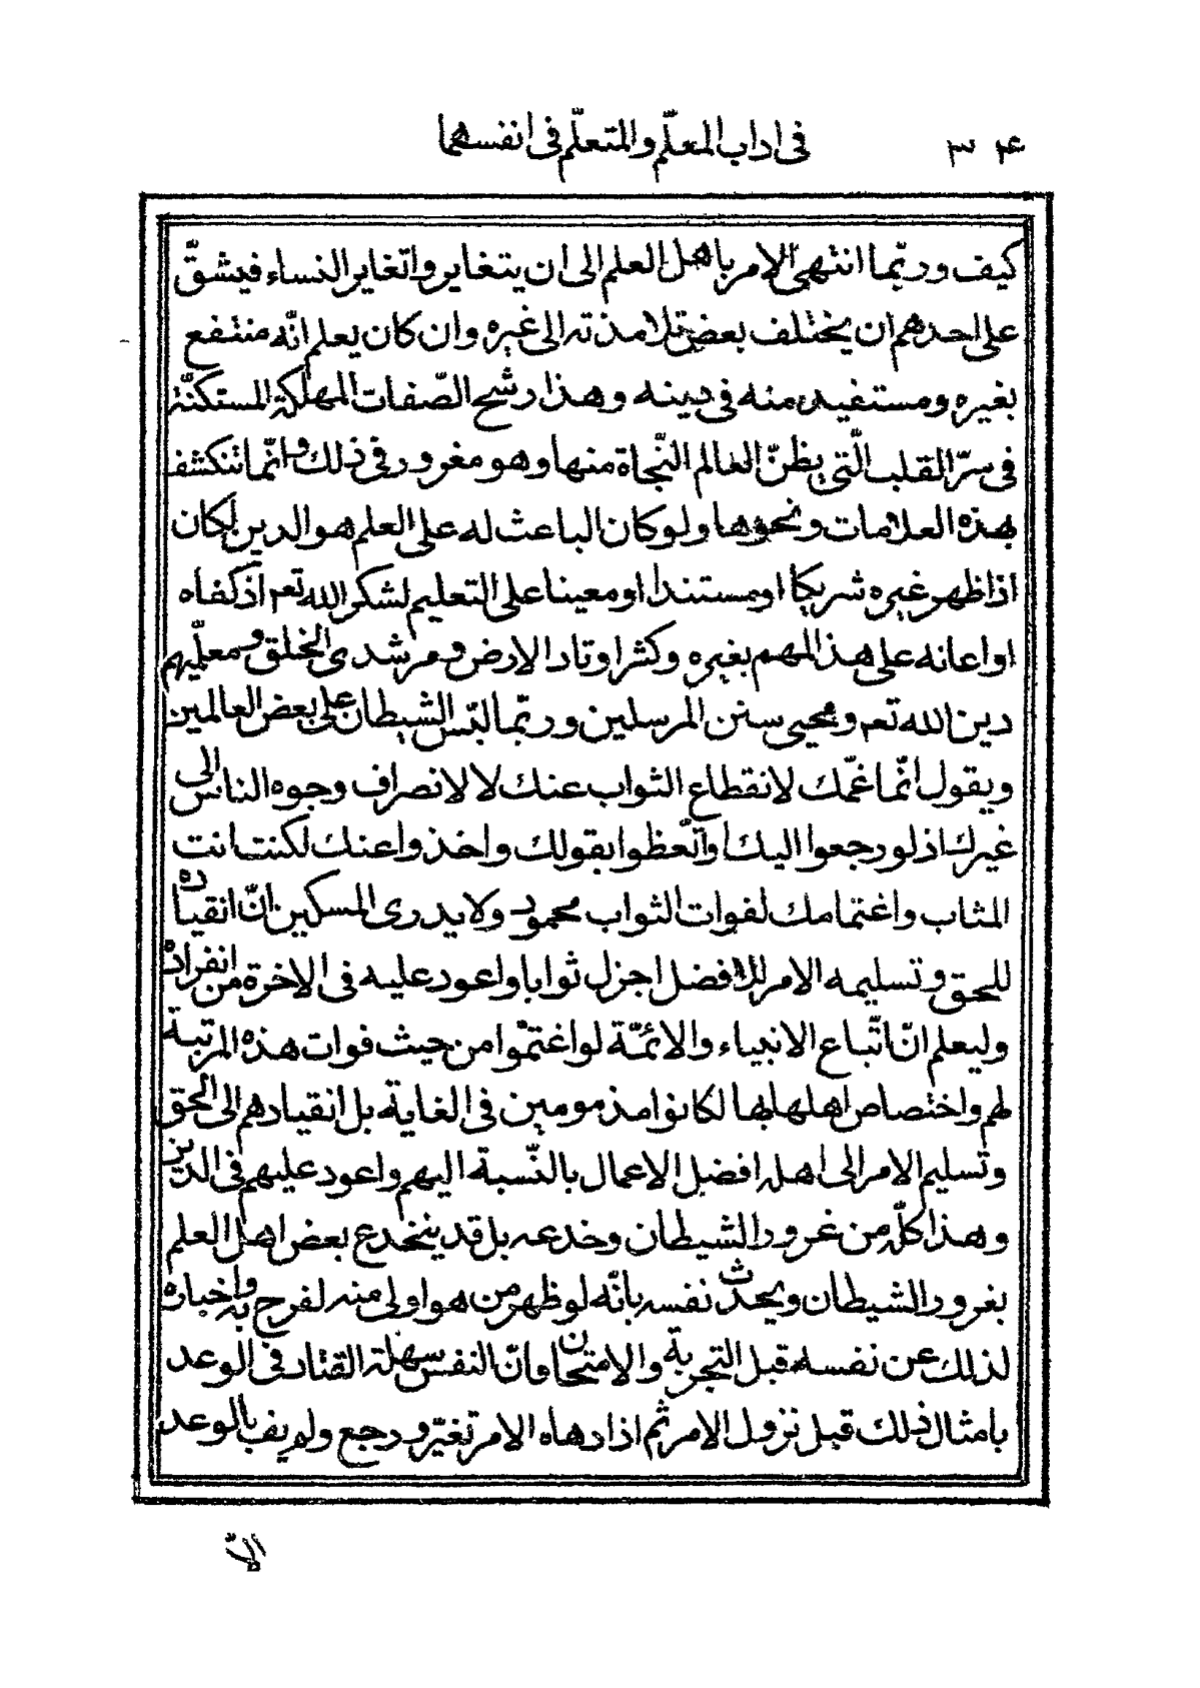 ۳۴ فى اداب المعلّم والمتعلّم فى انفسهما
كيف وربّما انتهى الامر باهل العلم الى ان يتغايروا تغاير النساء فيشقّ
على احدهم ان يختلف بعض تلامذته الى غيره وان كان يعلم انّه منتفع
بغيره ومستفيد منه فى دينه وهذا رشح الصّفات المهلكة المستكنّة
فى سرّ القلب الّتى يظنّ العالم النّجاة منها وهو مغرور فى ذلك وانّما تنكشف
بهذه العلامات ونحوها ولو كان الباعث له على العلم هو الدين لكان
اذا ظهر غيره شريكا او مستندا او معينا على التعليم لشكر الله تعم اذ كفاه
او اعانه على هذا المهم بغيره وكثر اوتاد الارض ومرشدى الخلق ومعلّميهم
دين الله تعم ومحيى سنن المرسلين وربّما لبّس الشيطان على بعض العالمين
ويقول انّما غمّك لانقطاع الثواب عنك لا لانصراف وجوه الناس الى
غيرك اذ لو رجعوا اليك واتّعظوا بقولك واخذوا عنك لكنت انت
المثاب واغتمامك لفوات الثواب محمود ولا يدرى المسكين انّ انقياده
للحق وتسليمه الامر للافضل اجزل ثوابا واعود عليه فى الاخرة من انفراده
وليعلم انّ اتّباع الانبياء والائمّة لو اغتمّوا من حيث فوات هذه المرتبة
لهم واختصاص اهلها بها لكانوا مذمومين فى الغاية بل انقيادهم الى الحق
وتسليم الامر الى اهله افضل الاعمال بالنّسبة اليهم واعود عليهم فى الدين
وهذا كلّه من غرور الشيطان وخدعه بل قد ينخدع بعض اهل العلم
بغرور الشيطان ويحدث نفسه بانّه لو ظهر من هو اولى منه لفرح به واخباره
لذلك عن نفسه قبل التجربة والامتحان وانّ النفس سهلة القتاد فى الوعد
بامثال ذلك قبل نزول الامر ثم اذا دهاه الامر تغيّر ورجع ولم يف بالوعد
الاّ